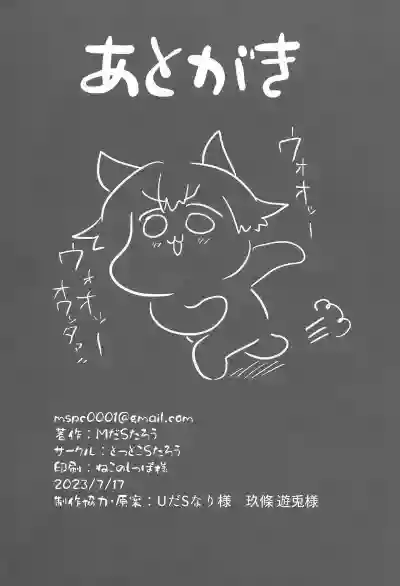 あとがき
ウオオッー
ウォオッー
オワッタァ!!
mspc0001@gmail.com
著作：MだSたろう
サークル：とっとこSたろう
印刷：ねこのしっぽ様
2023/7/17
制作協力・原案：UだSなり様　玖條遊兎様